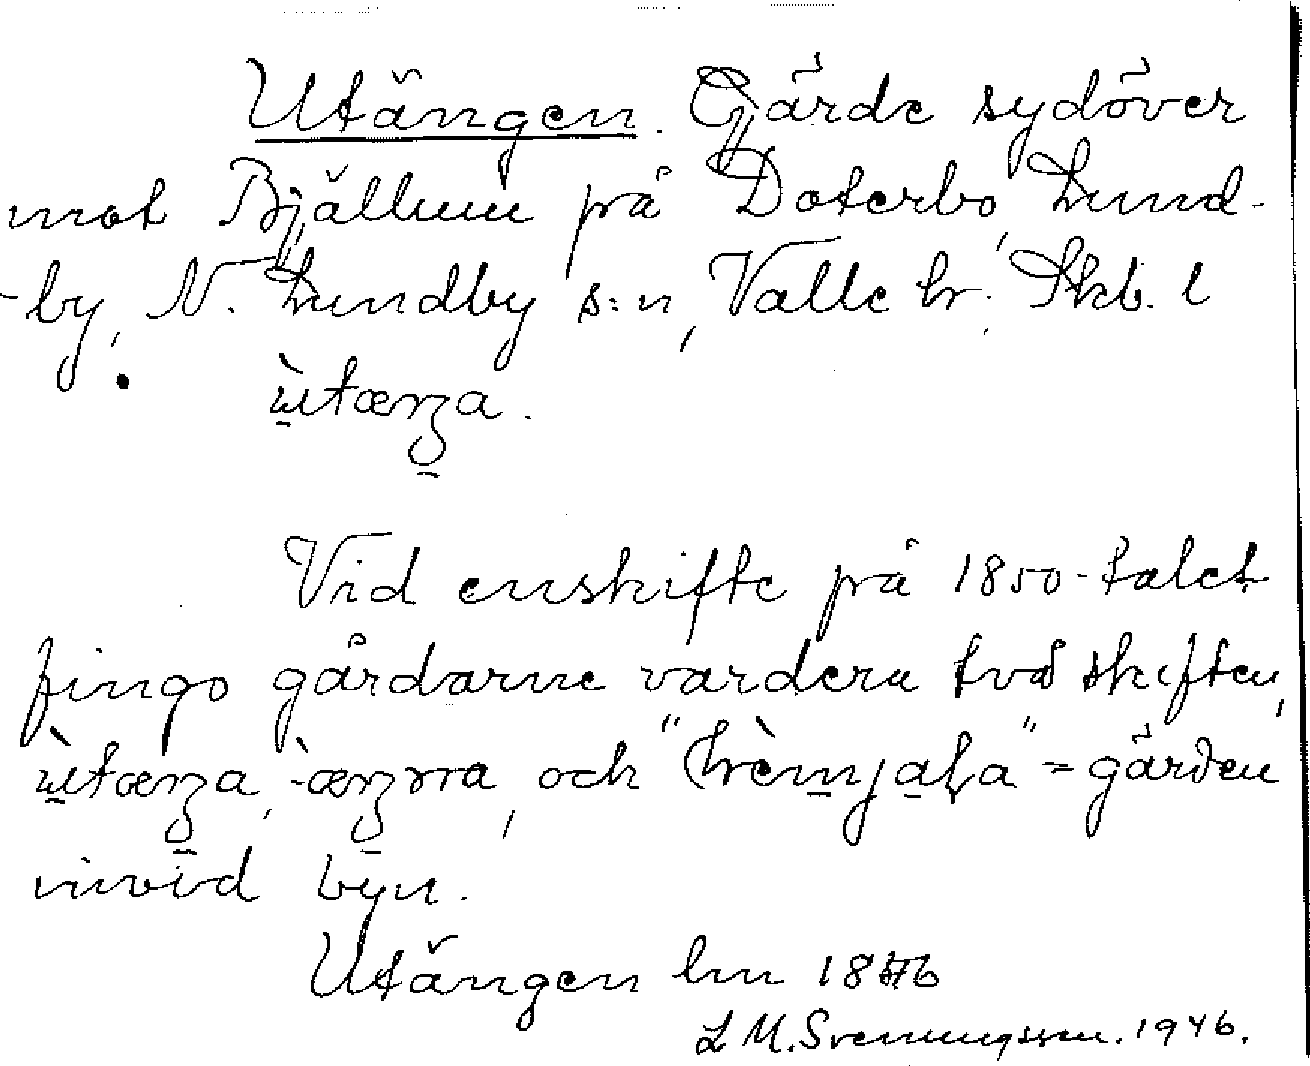 Utängen. Gärde sydöver
mot Bjällum på Doterbo, Lund-
-by, N. Lundby s:n, Valle hr. Skb. l
ùtæŋa.
Vid enskifte på 1850-talet
fingo gårdarne vardera två skiften,
ùtæŋa, -æŋɔrra, och "hèmjaḷa" = gärden
invid byn.
Utängen lm 1846
L M. Svenungsson. 1946.